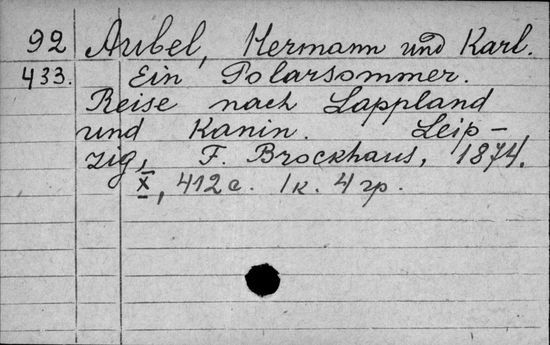 92 Aubel, Hermann und Karl.
433. Ein Polarsommer.
Reise nach Lappland
und Kanin. Leip-
zig, F. Brockhaus, 1874.
X, 412 c. 1 к. 4 гр.